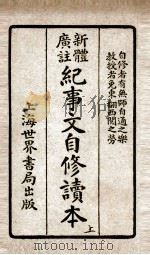 自修者有無師自通之樂
教授者免東翻西閱之勞
新體
廣註
紀事文自修讀本
上
上海世界書局出版
www.modu100.com